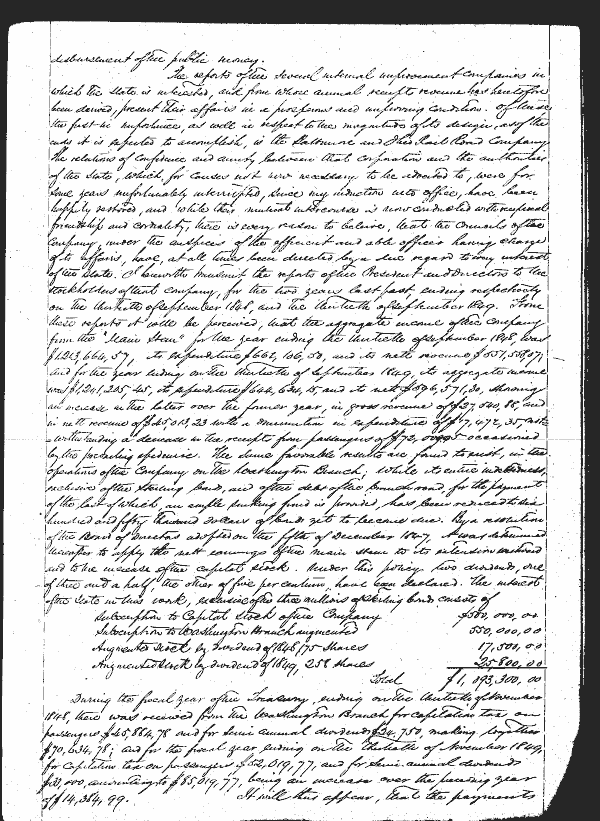 disbursement of the public money.
The reports of the several internal improvement companies in
which the State is interested, and from whose annual receipts revenue has heretofore
been derived, present their affairs in a prosperous and improving condition. Of these
the first in importance, as well in respect to the magnitude of its design, as of the
ends it is expected to accomplish, is the Baltimore and Ohio Rail Road Company.
The relations of confidence and amity between that corporation and the authorities
of the State, which, for causes not now necessary to be adverted to, were for
some years unfortunately interrupted, since my induction into office, have been
happily restored, and while their mutual intercourse is now conducted with reciprocal
friendship and cordiality, there is every reason to believe, that the Councils of the
Company, under the auspices of the efficient and able officers having charge
of its affairs, have, at all times been directed by a due regard to every interest
of the State. I herewith transmit the reports of the President and Directors to the
stockholders of that Company, for the two years last past, ending respectively
on the thirtieth of September 1848, and the thirtieth of September 1849. From
these reports it will be perceived, that the aggregate income of the Company
from the "Main Stem" for the year ending the thirtieth of September 1848, was
$1,213,664,57, its expenditure $662,106,50, and its nett revenue $551,558,07;
and for the year ending on the thirtieth of September 1849, its aggregate income
was $1,241,205,45, its expenditure $644,634,15, and its nett $596,571,30, showing
an increase in the latter over the former year, in gross revenue of $27,540,88, and
in nett revenue of $45,013,23 with a diminution in expenditure of $17,472,35, not-
withstanding a decrease in the receipts from passengers of occasioned
by the prevailing epidemic. The same favorable results are found to exist, in the
operations of the Company on the Washington Branch; while its entire indebtedness,
exclusive of the Sterling bonds, and of the debt of the branch road, for the payment
of the last of which, an ample sinking fund is provided, has been reduced to
hundred and fifty thousand dollars of bonds yet to become due. By a resolution
of the Board of Directors adopted on the fifth of December 1847, it was determined
thereafter to apply the nett earnings of the main stem to its extension westward
and to the increase of the capital stock. Under this policy two dividends, one
of three and a half, the other of five per centum, have been declared. The interest
of the State in this work, exclusive of the three millions of Sterling bonds consists of
Subscription to Capital Stock of the Company $500,000,00
Subscription to Washington Branch augmented 550,000,00
Augmented Stock by dividend of 1848, 175 shares 17,500,00
Augmented Stock by dividend of 1849, 258 shares 25,800,00
Total $1,093,300,00
During the fiscal year of the Treasury, ending on the thirtieth of November
1848, there was received from the Washington Branch for capitation tax on
passengers $45,884,78 and for semi annual dividends $24,750, making together
$70,634,78; and for the fiscal year ending on the thirtieth of November 1849,
for capitation tax on passengers $52,019,77, and for semi annual dividends
$33,000, amounting to $85,019,77, being an increase over the preceding year
of $14,384,99. It will thus appear, that the payments